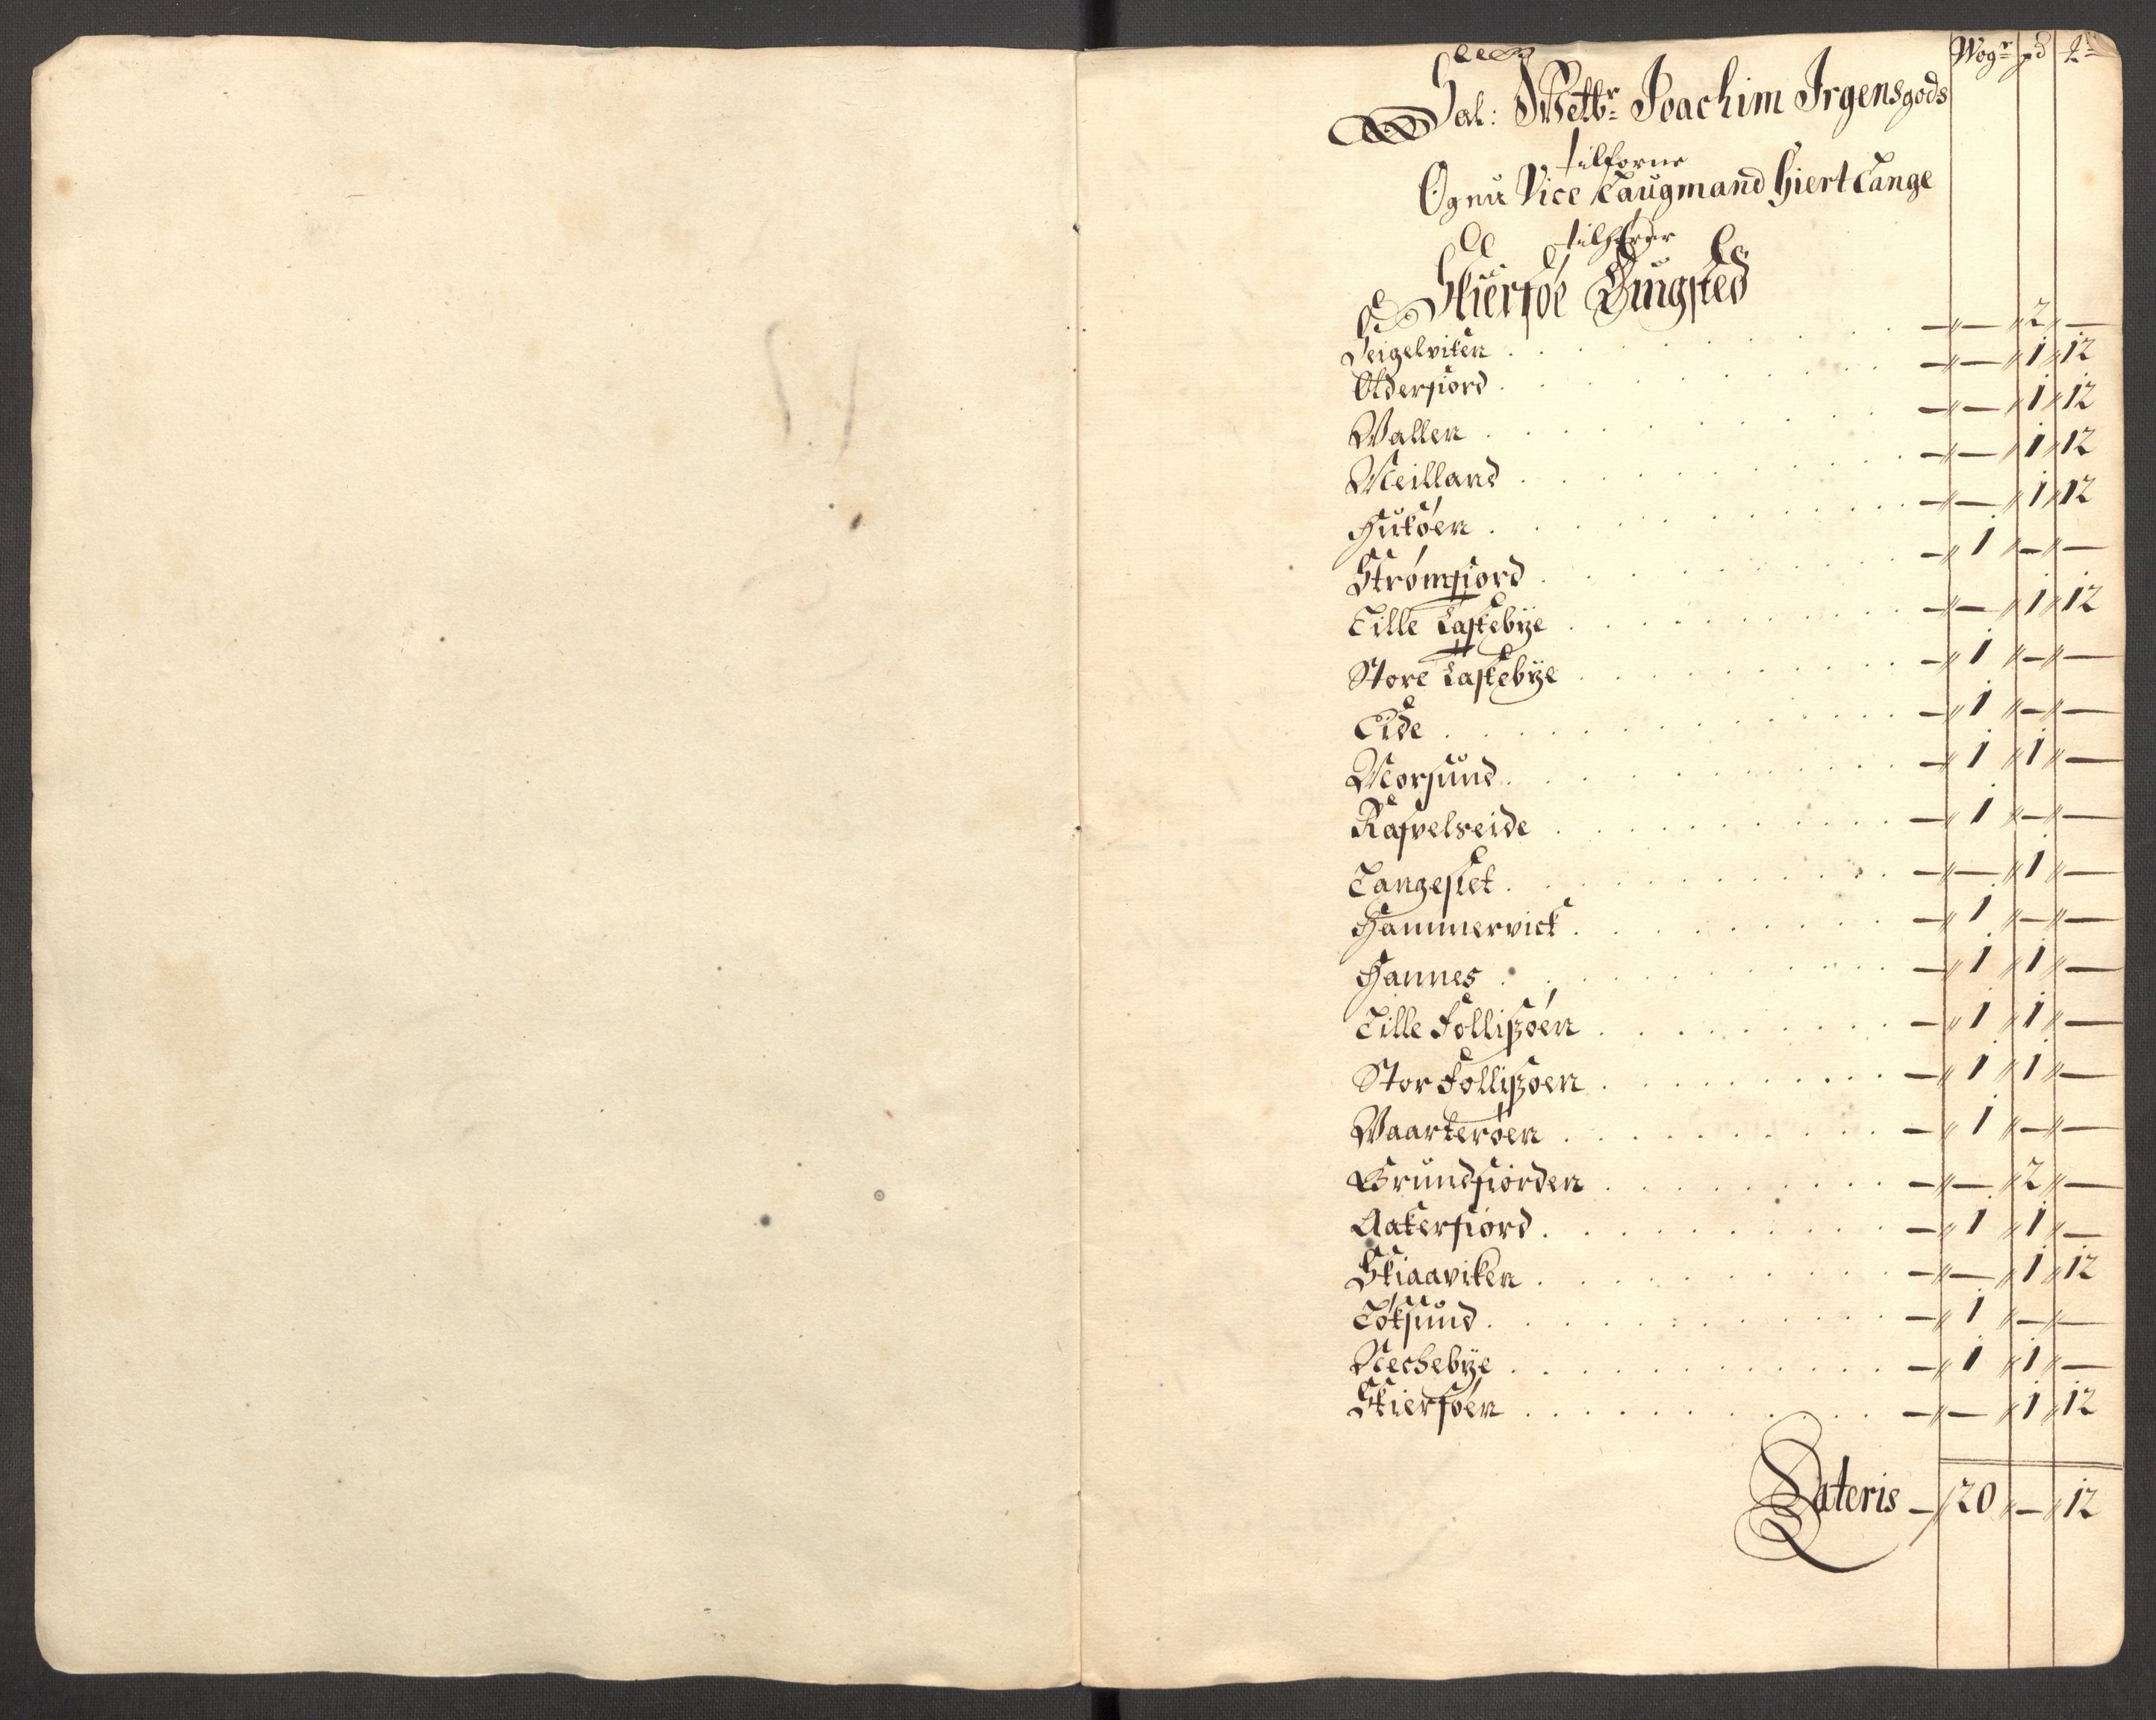 Wogr pd
Sal: Welbr Joachim Irgens gods
tilforne
Og nu Vice Laugmand Hiert Lange
tilhører
Skierføe Tingsted
Seigelviken — " — " 2 " —
Olderfiord — " — " 1 " 12
Wallen — " — " 1 " 12
Meilland — " — " 1 " 12
Hukøen — " — " 1 " 12
Strømfiord — " 1 " — " —
Lille Taskebye — " — " 1 " 12
Store Taskebye — " 1 " — " —
Eide — " 1 " — " —
Morsund — " 1 " 1 " —
Rafvelseide — " 1 " — " —
Langeslet — " — " 1 " —
Hammervick — " 1 " — " —
Hannes — " 1 " 1 " —
Lille Follisøen — " 1 " 1 " —
Stor Follisøen — " 1 " 1 " —
Waarterøen — " 1 " — " —
Grundfiorden — " — " 2 " —
Aakerfiord — " 1 " 1 " —
Skiaaviken — " — " 1 " 12
Løksund — " 1 " — " —
Mechebye — " 1 " 1 " —
Skierføen — " — " 1 " 12
Lateris — " 20 " — " 12